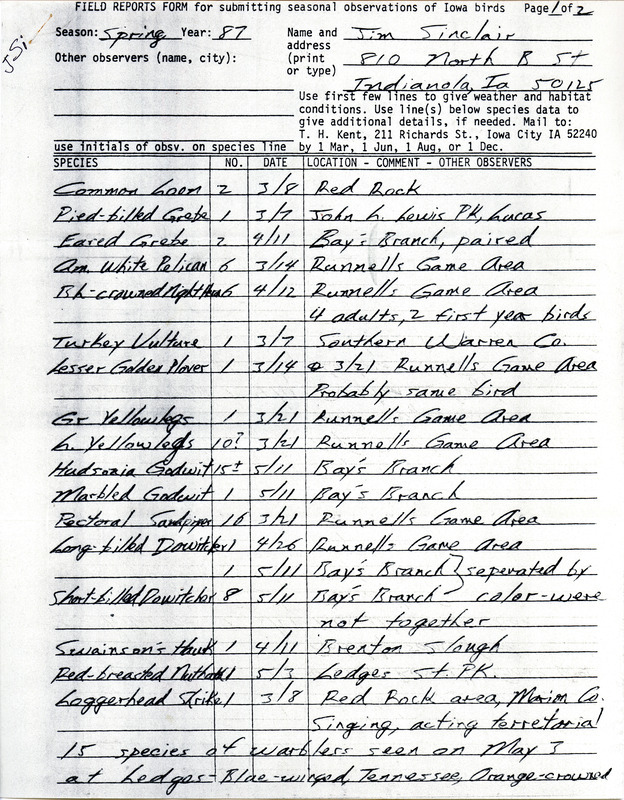 FIELD REPORTS FORM for submitting seasonal observations of Iowa birds Page 1 of 2
JSi
Season: Spring Year: 87
Name and address (print or type) Jim Sinclair
810 North B St
Indianola, Ia 50125
Other observers (name, city):
Use first few lines to give weather and habitat
conditions. Use line(s) below species data to
give additional details, if needed. Mail to:
T. H. Kent, 211 Richards St., Iowa City IA 52240
use initials of obsv. on species line by 1 Mar, 1 Jun, 1 Aug, or 1 Dec.
SPECIES NO. DATE LOCATION - COMMENT - OTHER OBSERVERS
Common Loon 2 3/8 Red Rock
Pied-billed Grebe 1 3/7 John L. Lewis PK, Lucas
Eared Grebe 2 4/11 Bay's Branch, paired
Am. White Pelican 6 3/14 Runnells Game Area
Blk-crowned Night 6 4/12 Runnells Game Area
4 adults, 2 first year birds
Turkey Vulture 1 3/7 Southern Warren Co.
Lesser Golden Plover 1 3/14 3/21 Runnells Game Area
Probably same bird
Gr Yellowlegs 1 3/21 Runnells Game Area
L. Yellowlegs 10? 3/21 Runnells Game Area
Hudsonia Godwit 15± 5/11 Bay's Branch
Marbled Godwit 1 5/11 Bay's Branch
Pectoral Sandpiper 16 3/21 Runnells Game Area
Long-billed Dowitcher 1 4/26 Runnells Game Area
1 5/11 Bay's Branch } seperated by
Short-billed Dowitcher 8 5/11 Bay's Branch color-were
not together
Swainson's Hawk 1 4/11 Brenton Slough
Red-breasted Nuthatch 1 5/3 Ledges St. PK.
Loggerhead Strike 1 3/8 Red Rock area, Marion Co.
Singing, acting terretorial
15 species of warblers seen on May 3
at Ledges- Blue-winged, Tennessee, Orange-crowned